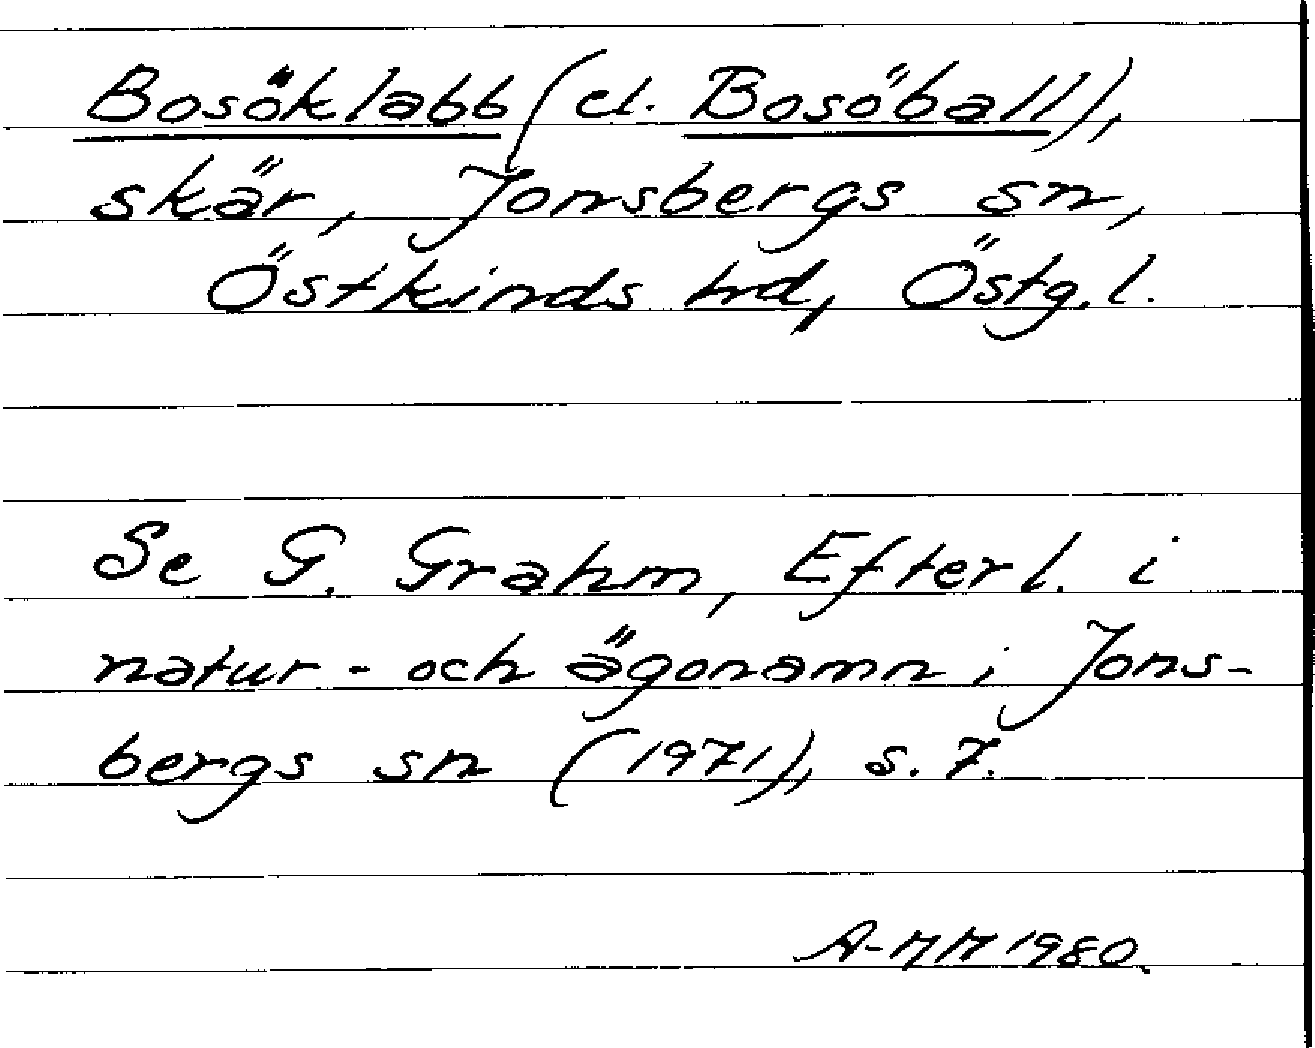 Bosöklabb (el. Bosöball),
skär, Jonsbergs sn,
Östkinds hd, Östg.l.
Se G. Grahm, Efterl. i
natur- och ägonamn i Jons-
bergs sn (1971), s. 7.
A-MM 1980.